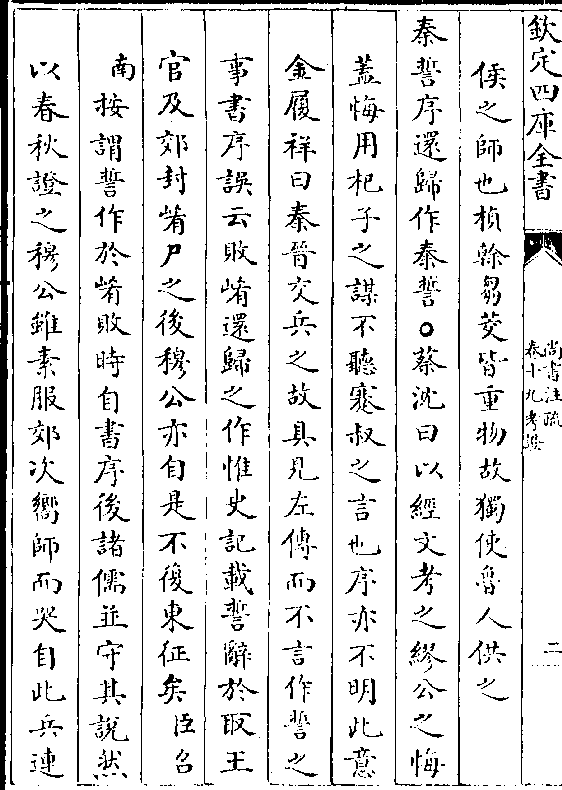 欽定四庫全書
尚書注疏
卷十九考證
二
侯之師也楨榦芻茭皆重物故獨使魯人供之
秦誓序還歸作秦誓○蔡沈曰以經文考之繆公之悔
蓋悔用杞子之謀不聽蹇叔之言也序亦不明此意
金履祥曰秦晉交兵之故具見左傳而不言作誓之
事書序誤云敗崤還歸之作惟史記載誓辭於取王
官及郊封崤尸之後穆公亦自是不復東征矣臣召
南按謂誓作於崤敗時自書序後諸儒並守其說然
以春秋證之穆公雖素服郊次嚮師而哭自此兵連